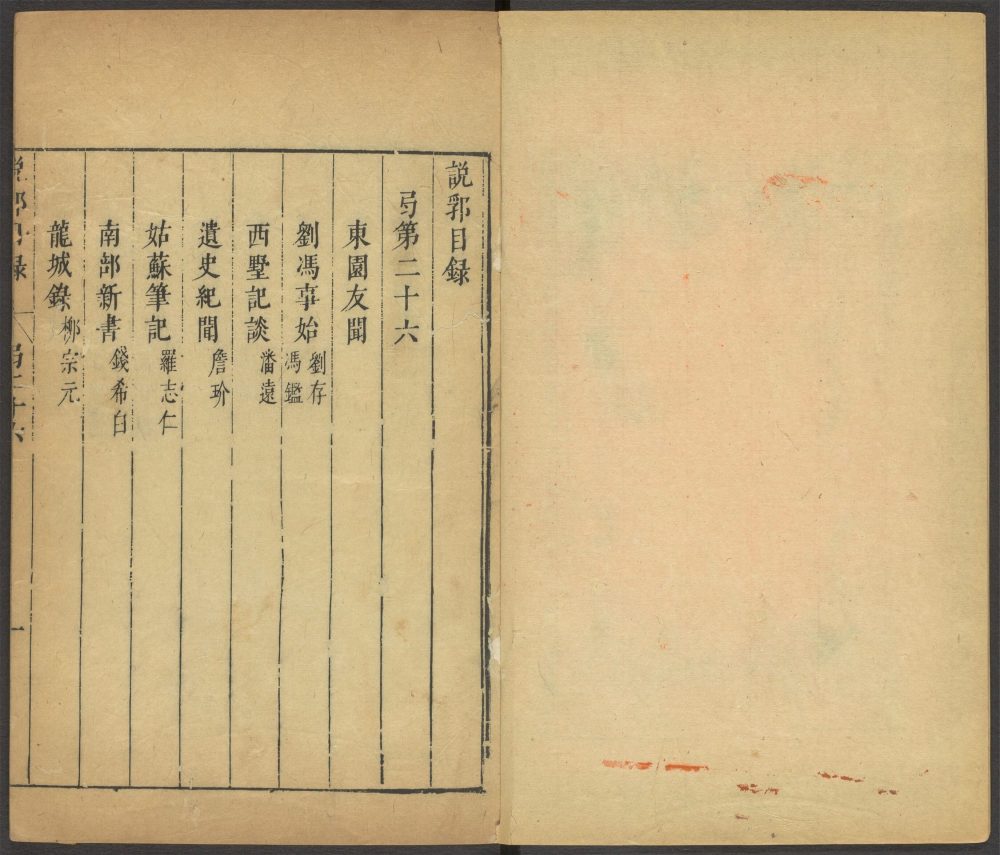 說郛目錄
弓第二十六
東園友聞
劉馮事始 劉存 馮鑑
西墅記談 潘遠
遺史紀聞 詹玠
姑蘇筆記 羅志仁
南部新書 錢希白
龍城錄 柳宗元
說郛目錄 弓二十六 一